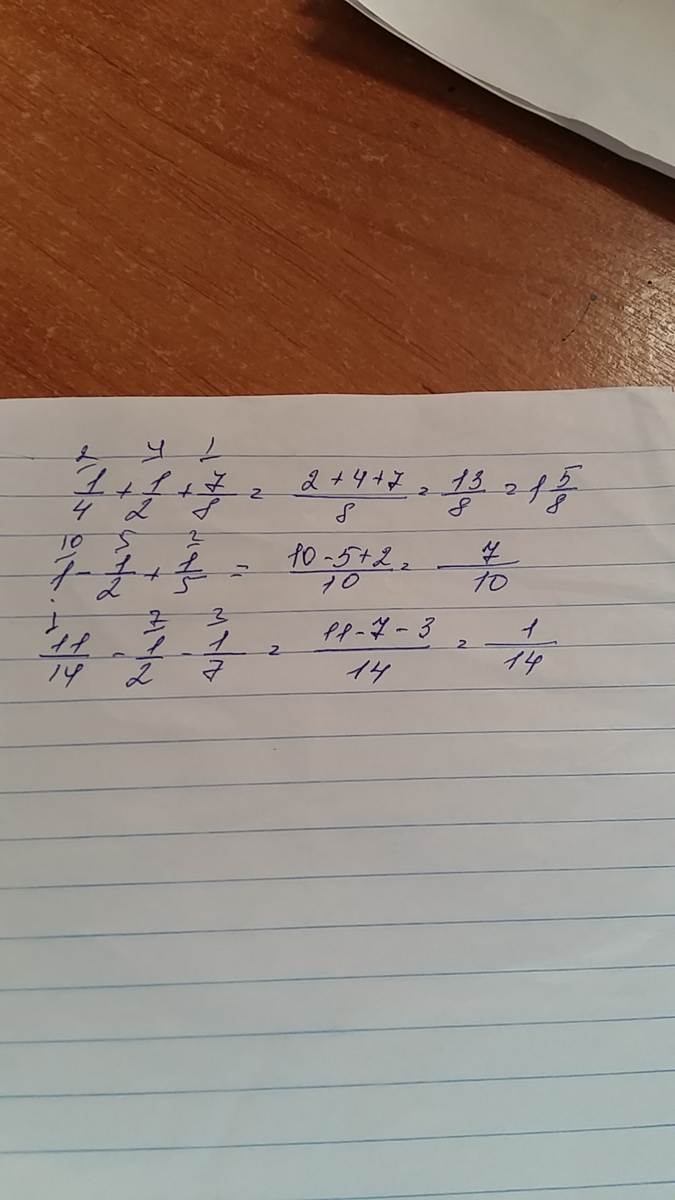 2 4 1
1/4 + 1/2 + 7/8 = (2+4+7)/8 = 13/8 = 1 5/8
10 5 2
1 - 1/2 + 1/5 = (10-5+2)/10 = 7/10
1 7
11/14 - 1/2 - 1/7 = (11-7-3)/14 = 1/14